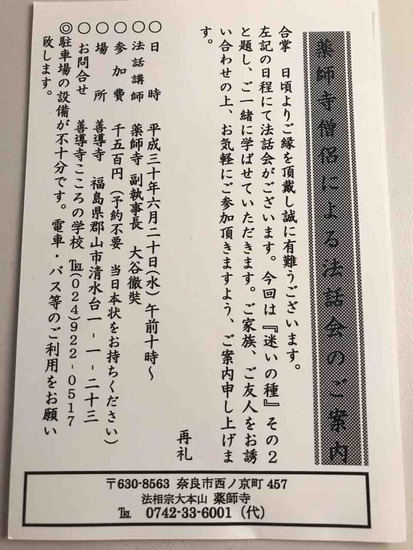 薬師寺僧侶による法話会のご案内
合掌　日頃よりご縁を頂戴し誠に有難うございます。
左記の日程にて法話会がございます。今回は『迷いの種』その２
と題し、ご一緒に学ばせていただきます。ご家族、ご友人をお誘
い合わせの上、お気軽にご参加頂きますよう、ご案内申し上げま
す。
再礼
〇日　時　平成三十年六月二十日(水)　午前十時～
〇法話講師　薬師寺　副執事長　大谷徹奘
〇参加費　千五百円（予約不要　当日本状をお持ちください）
〇場　所　善導寺　福島県郡山市清水台１－１－二十三
〇お問合せ　善導寺こころの学校　℡(024)922-0517
◎駐車場の設備が不十分です。電車・バス等のご利用をお願い
致します。
〒630-8563　奈良市西ノ京町 457
法相宗大本山　薬師寺
℡　0742-33-6001（代）